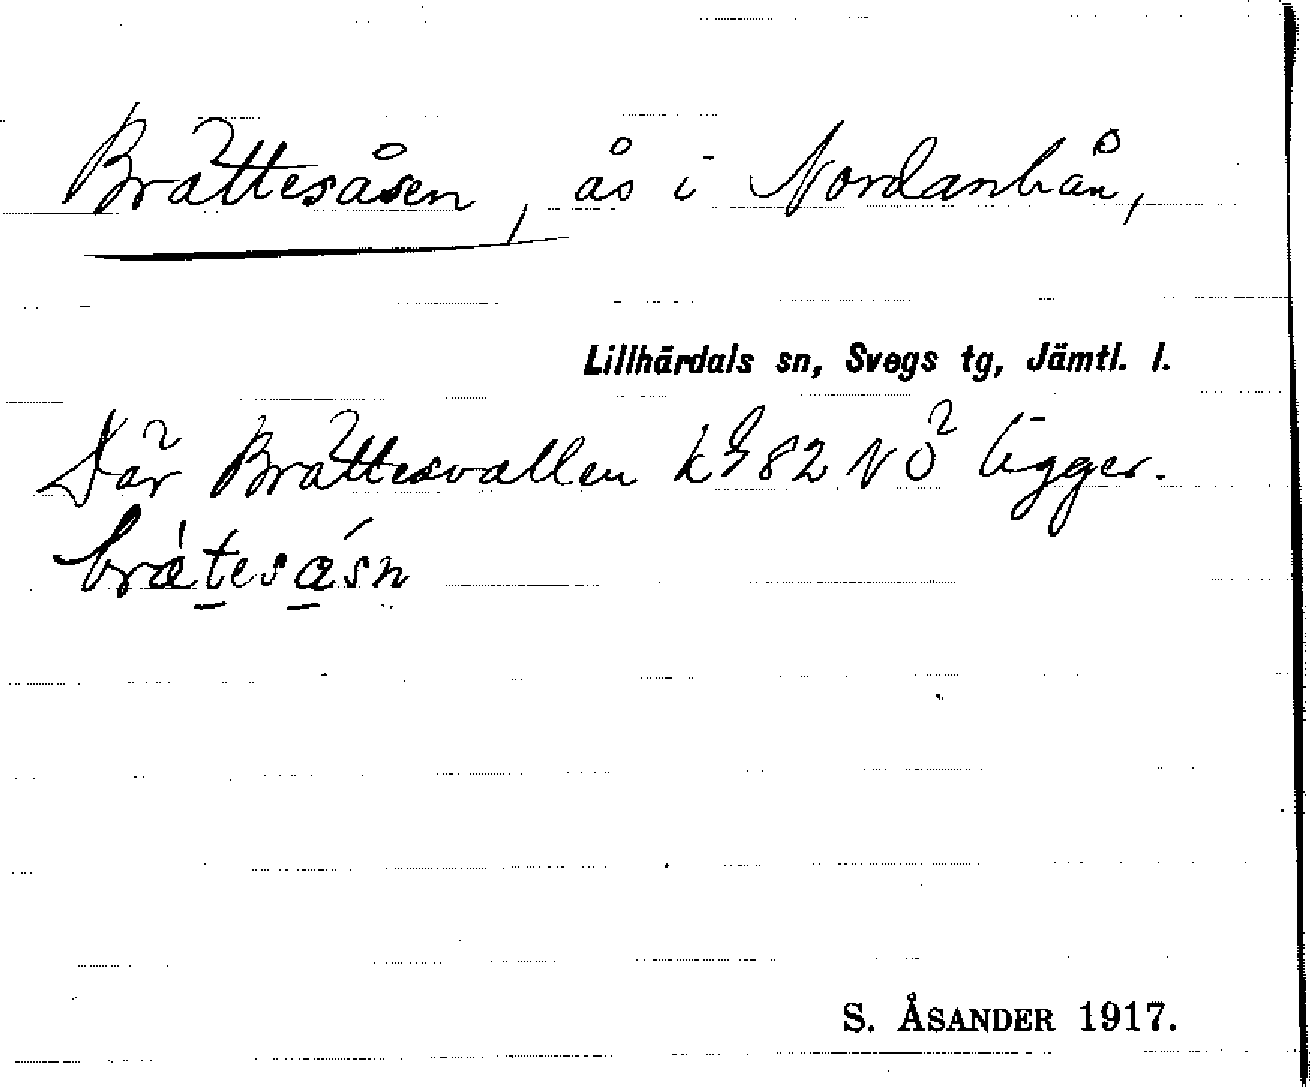 Brättesåsen, ås i Nordanhån,
Lillhärdals sn, Svegs tg, Jämtl. l.
Där Brättesvallen 82 NÖ ligger.
S. ÅSANDER 1917.